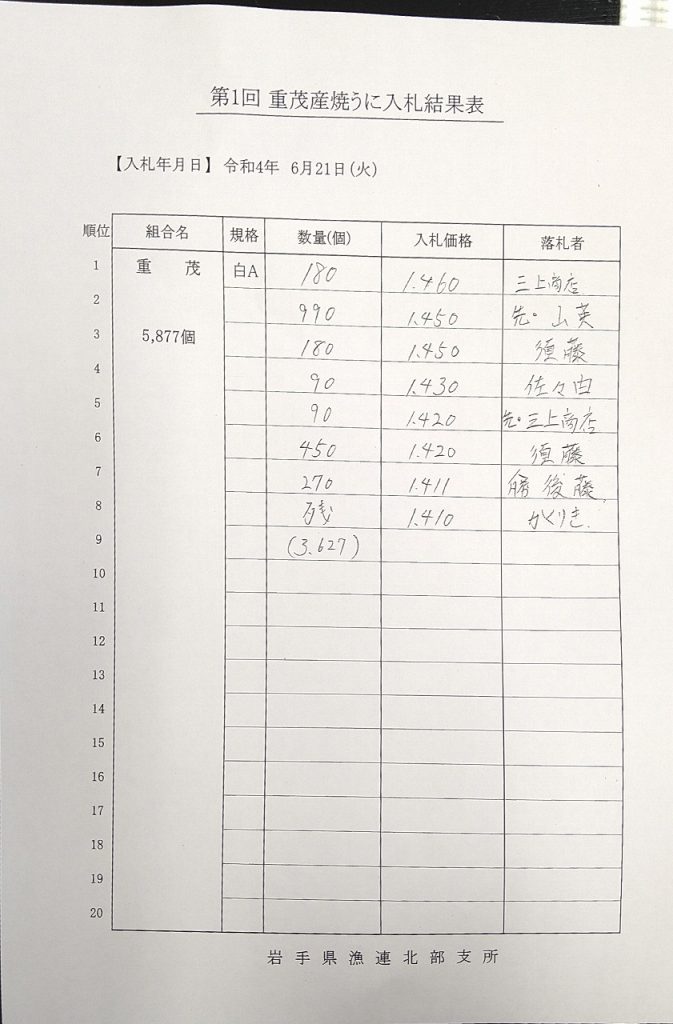 第1回 重茂産焼うに入札結果表
【入札年月日】 令和4年 6月21日(火)
順位 組合名 規格 数量(個) 入札価格 落札者
1 重 茂 白A 180 1.460 三上商店
2 990 1.450 先・山英
3 5,877個 180 1.450 須藤
4 90 1.430 佐々由
5 90 1.420 先・三上商店
6 450 1.420 須藤
7 270 1.411 後藤
8 残 1.410 かくりき.
9 (3.627)
10
11
12
13
14
15
16
17
18
19
20
岩手県漁連北部支所